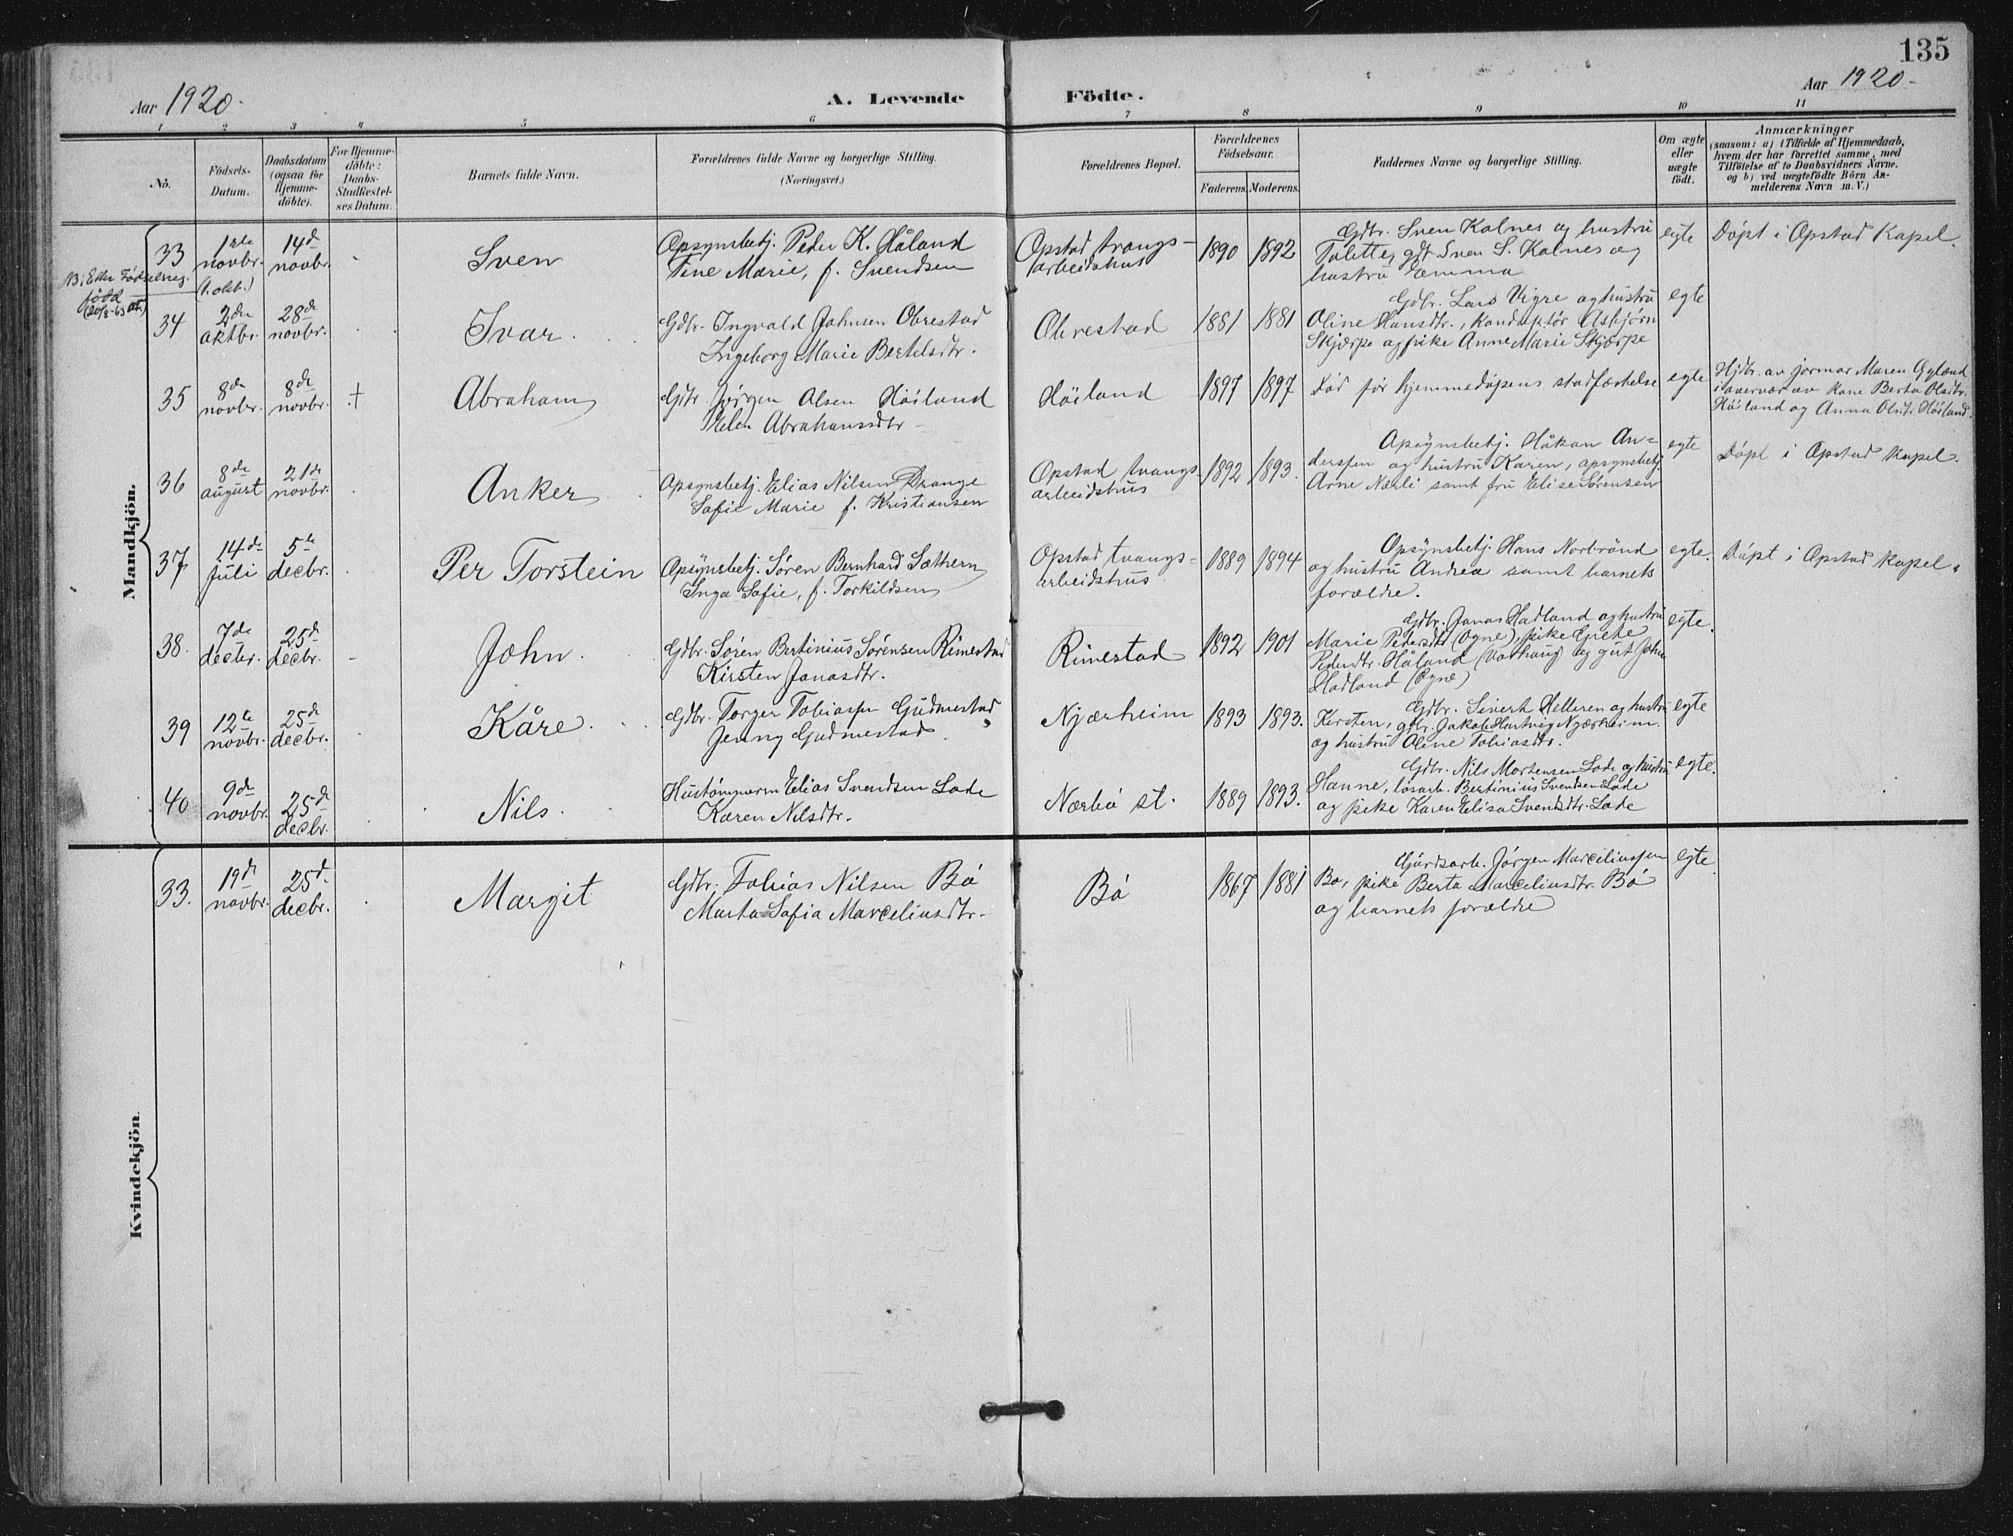 135
Aar 1920.
A. Levende Födte.
Aar 1920.
1 2 3 4 5 6 7 8 9 10 11
No.
Födsels-Datum.
Daabsdatum (ogsaa for Hjemmedöbte).
For Hjemmedöbte: Daabs-Stadfæstelses Datum.
Barnets fulde Navn.
Forældrenes fulde Navne og borgerlige Stilling.
(Næringsvei.)
Forældrenes Bopæl.
Forældrenes Födselsaar.
Faderens. Moderens.
Faddernes Navne og borgerlige Stilling.
Om ægte eller uægte födt.
Anmærkninger
(saasom: a) i Tilfælde af Hjemmedaab,
hvem der har forrettet samme, med
Tilföielse af to Daabsvidners Navne,
og b) ved uægtefödte Börn An-
melderens Navn m. V.)
Mandkjön.
33
1ste novbr.
(1. okt.)
14de novbr.
Sven
Opsynsbetj. Peder K. Håland
Tine Marie, f. Svendsen
Opstad tvangs-
arbeidshus
1890 1892
Gdbr. Sven Kalnes og hustru
Tolette, gdb. Sven S. Kalnes og
hustru Emma
egte
Döpt i Opstad Kapel.
34
2den oktbr.
28de novbr.
Ivar
Gdbr. Ingvald Johnsen Obrestad
Ingeborg Marie Bertelsdtr.
Obrestad
1881 1881
Gdbr. Lars Vigre og hustru
Oline Hansdtr., konduktör Asbjörn
Skjærpe og pike Anne Marie Skjærpe
egte
35
8de novbr.
8de novbr.
+
Abraham
Gdbr. Jörgen Olsen Höiland
Helen Abrahamsdtr.
Höiland
1897 1897
Död för hjemmedåpens stadfæstelse
egte
Hjdbt. av jormor Maren
i nærvær av kone Berta Olsdtr.
Höiland og Anna Olsdtr. Höiland
36
8de august
21de novbr.
Anker
Opsynsbetj. Elias Nilsen Drange
Sofie Marie f. Kristiansen
Opstad tvangs
arbeidshus
1892 1893.
Opsynsbetj. Håkon An-
derssen og hustru Karen, opsynsbetj.
Arne Nærli samt fru Elise Sörensen
egte
Döpt i Opstad Kapel.
37
14de juli
5te decbr.
Per Torstein
Opsynsbetj. Sören Bernhard Sæthern
Inga Sofie, f. Torkildsen
Opstad tvangs-
arbeidshus
1889 1894
Opsynsbetj. Hans Norbrönd
og hustru Andrea samt barnets
forældre.
egte.
Döpt i Opstad Kapel.
38.
7de decbr.
25de decbr.
John
Gdbr. Sören Bertinius Sörensen Rimestad
Kirsten Jonasdtr.
Rimestad
1892 1901
Gdbr. Jonas Hadland og hustru
Marie Pedersdtr. (Ogne), pike Grete
Pedersdtr. Håland (Varhaug) og gut John
Hadland (Ogne)
egte.
39
12te novbr.
25de decbr.
Kåre
Gdbr. Torger Tobiassen Gudmestad
Jenny Gudmestad.
Njærheim
1893 1893.
Gdbr. Sivert Helleren og hustru
Kirsten, gdbr. Jakob Hartvig Njærheim.
og hustru Oline Tobiasdtr.
egte
40
9de novbr.
25de decbr.
Nils
Elias Svendsen Lode
Karen Nilsdtr.
Nærbö st.
1889 1893.
Gdbr. Nils Mortensen Lode og hustru
Hanne, lösarb. Bertinius Svendsen Lode
og pike Karen Elisa Svendsdtr. Lode
egte.
Kvindekjön.
33.
19de novbr.
25de decbr.
Margit
Gdbr. Tobias Nilsen Bö
Marta Sofia Marceliusdtr.
Bö
1867 1881
Gårdsarb. Jörgen Marceliussen
Bö, pike Berta Marceliusdtr. Bö
og barnets forældre
egte